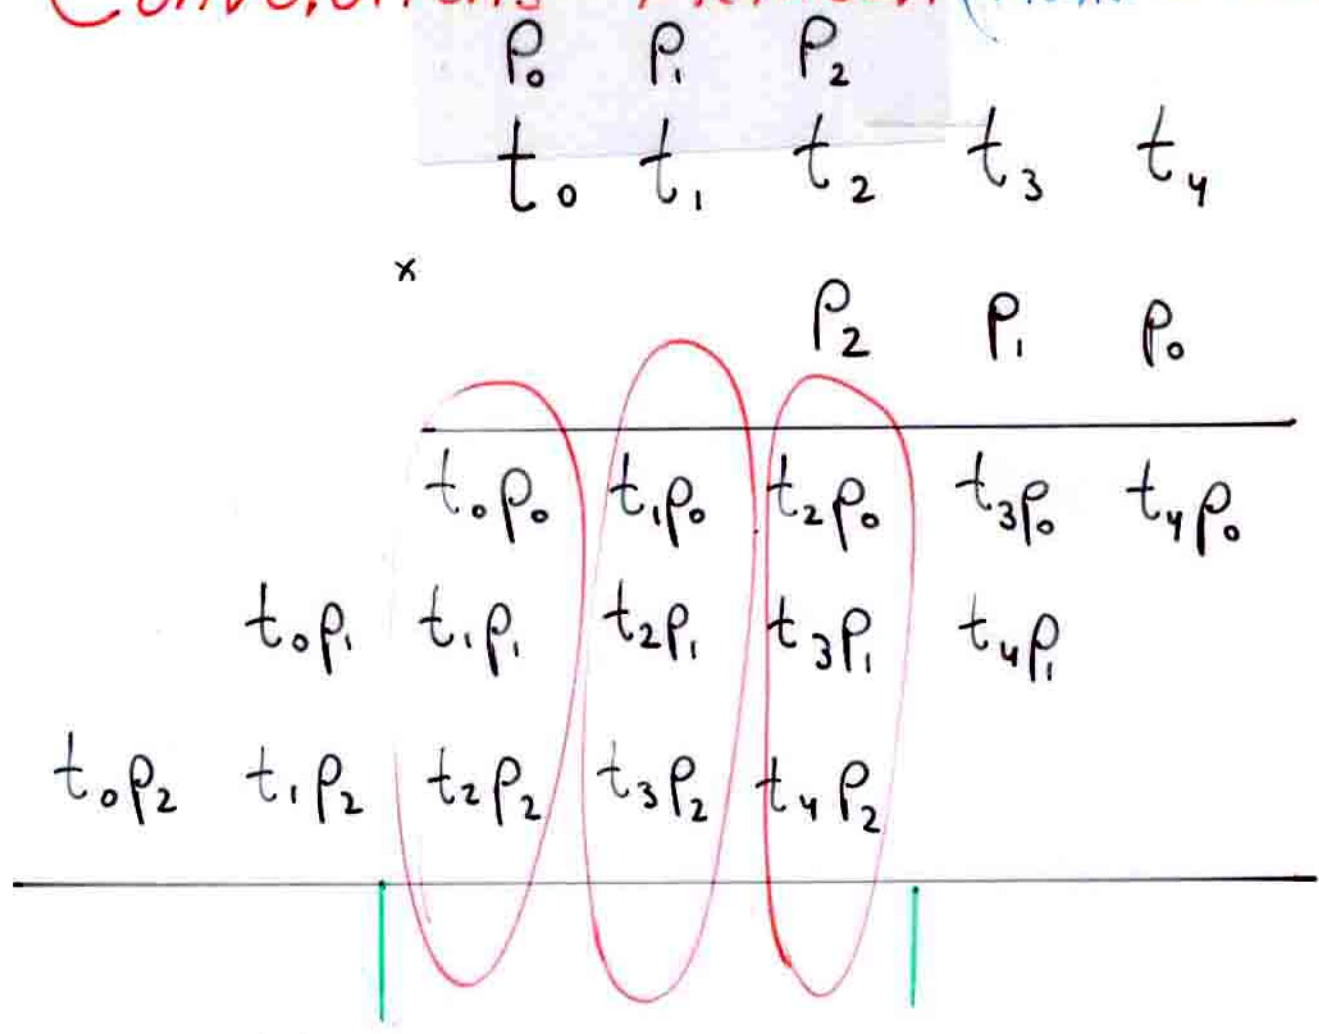 P₀ P₁ P₂
t₀ t₁ t₂ t₃ t₄
×
P₂ P₁ P₀
t₀P₀ t₁P₀ t₂P₀ t₃P₀ t₄P₀
t₀P₁ t₁P₁ t₂P₁ t₃P₁ t₄P₁
t₀P₂ t₁P₂ t₂P₂ t₃P₂ t₄P₂